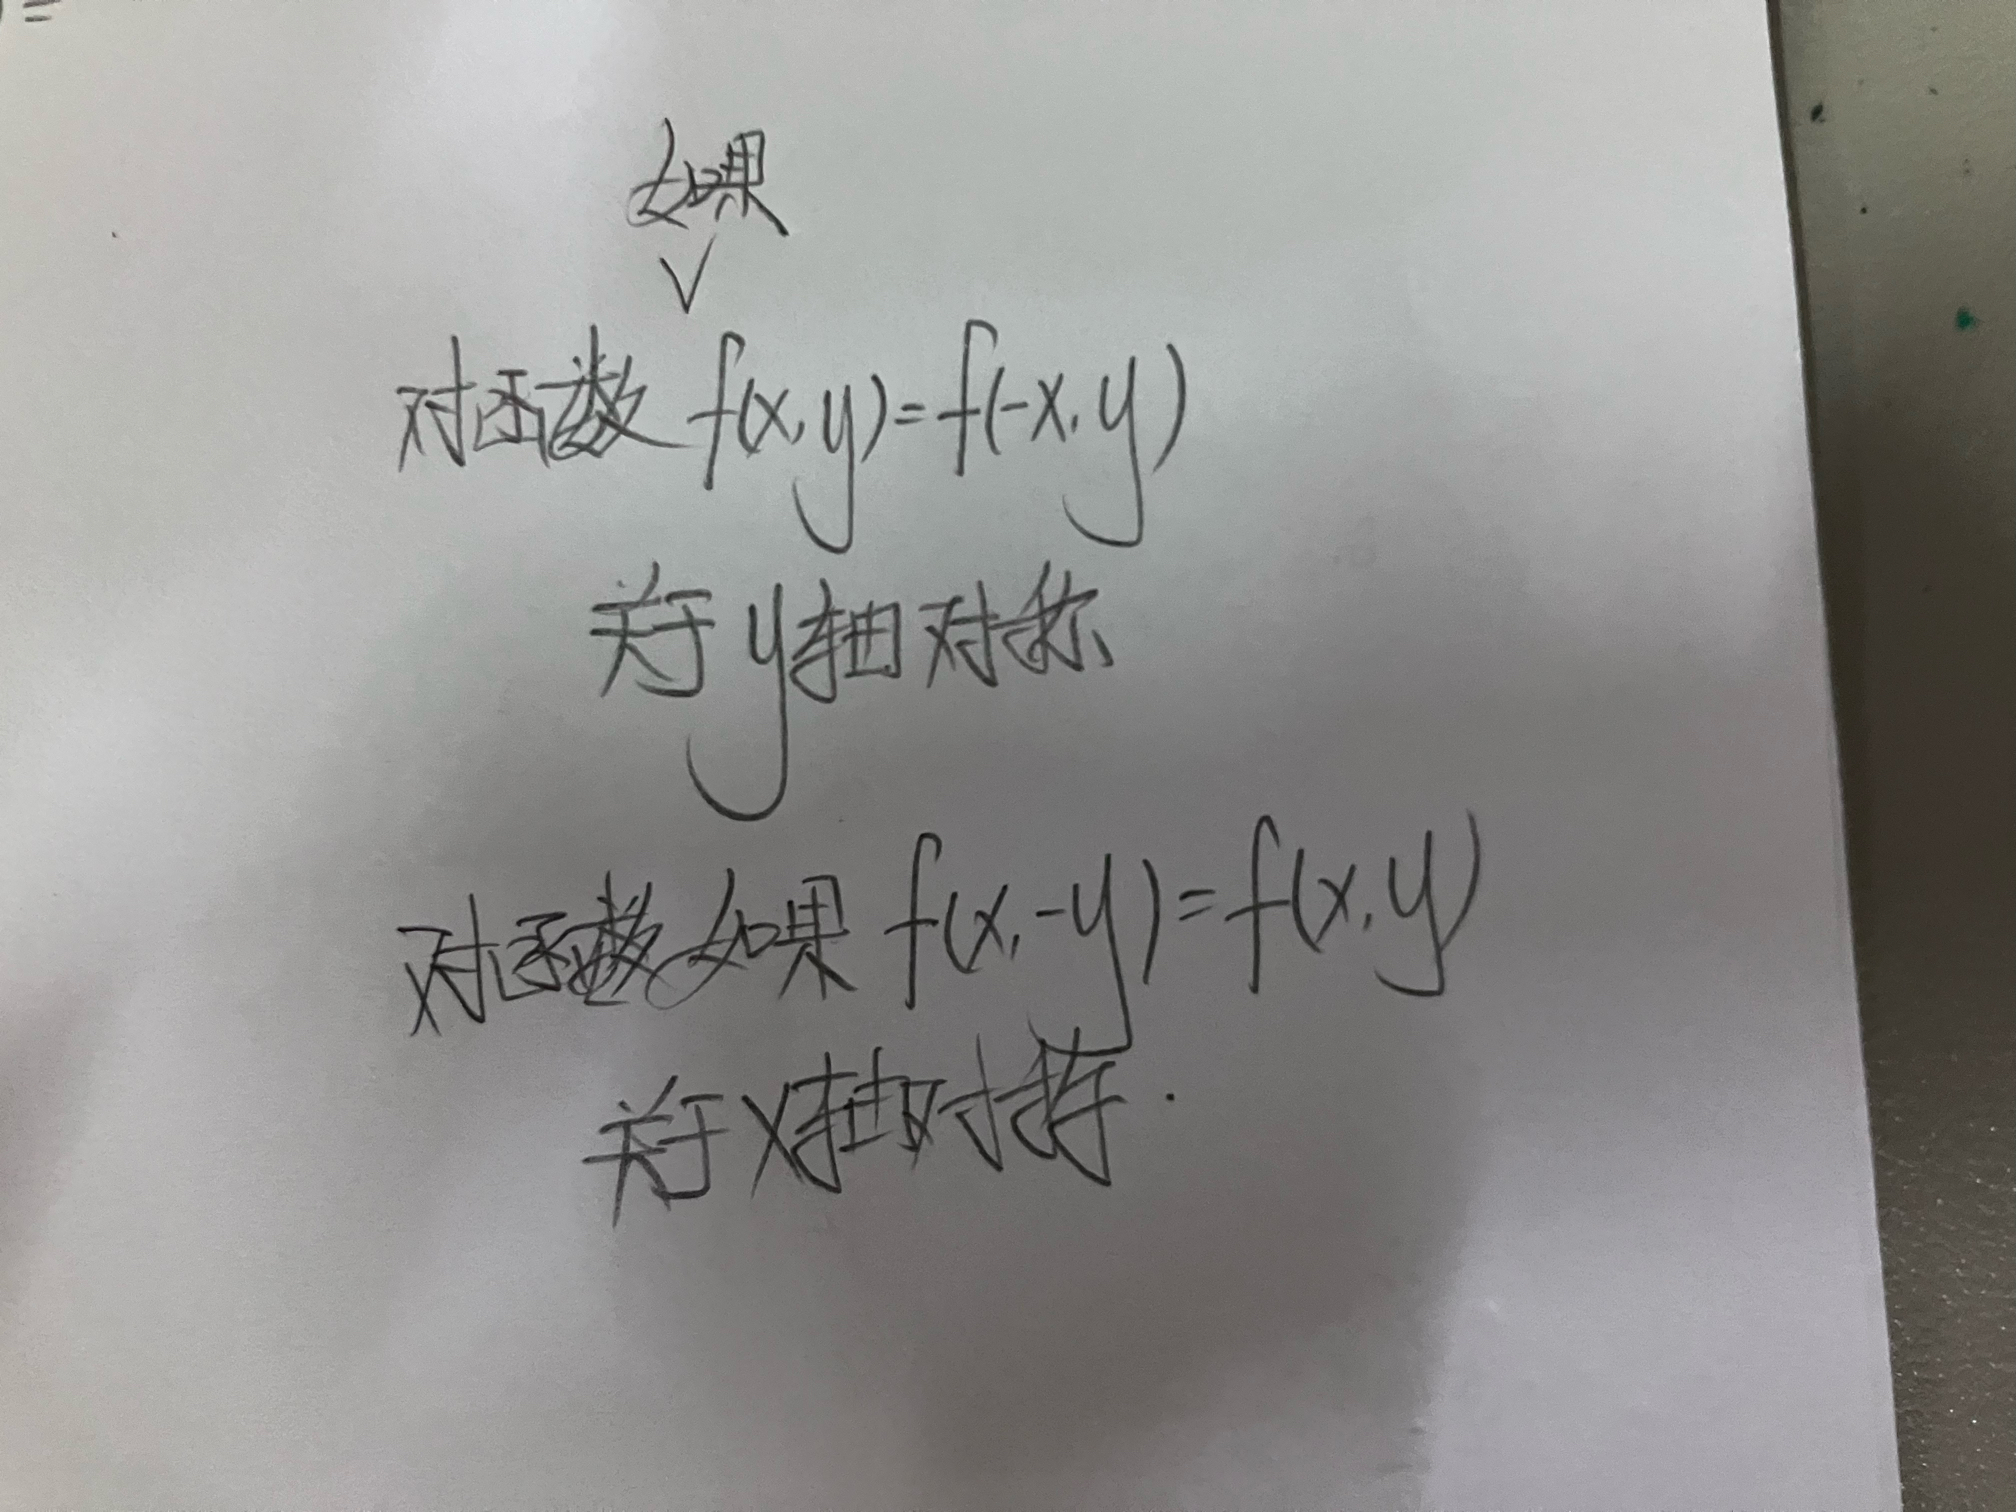 如果
∨
对函数 f(x,y)=f(-x,y)
关于y轴对称
对函数如果 f(x,-y)=f(x,y)
关于X轴对称.